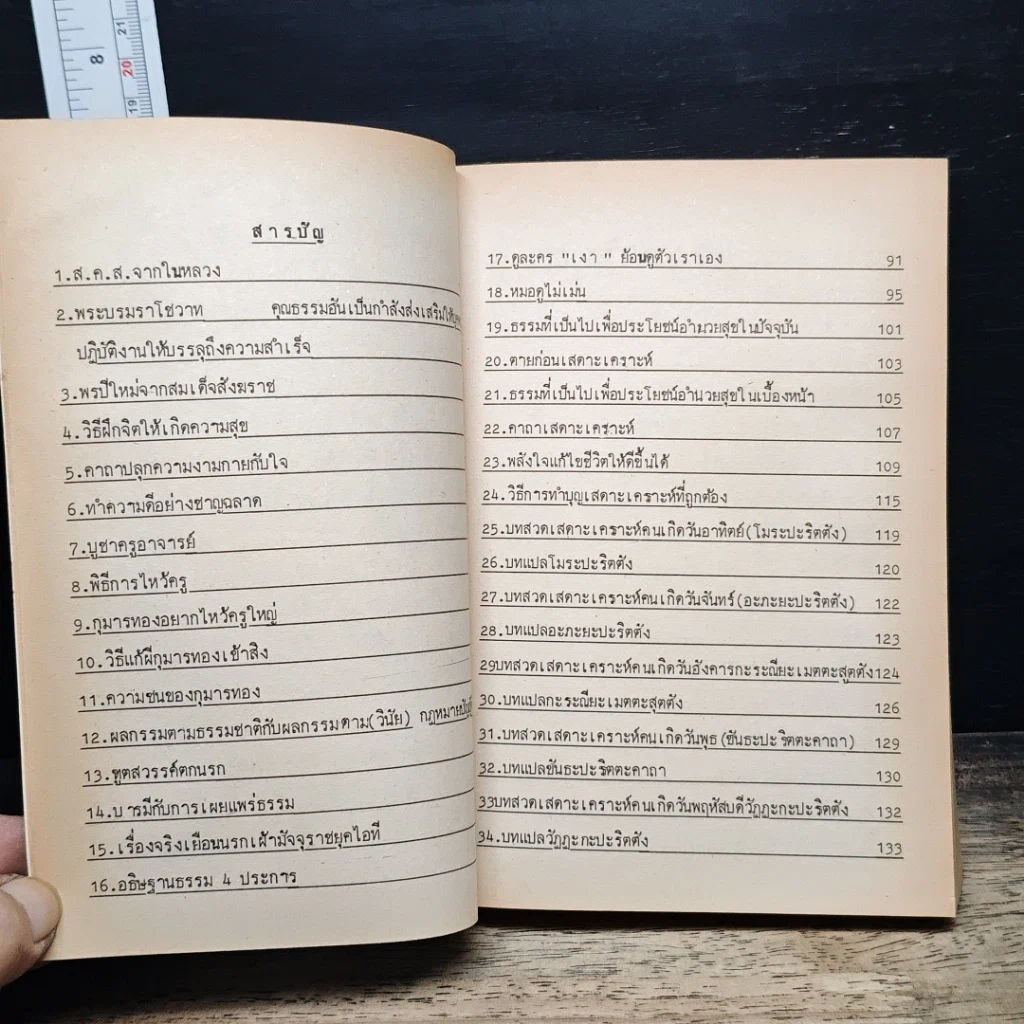 8
21
20
19
สารบัญ
1.ส.ค.ส.จากในหลวง
2.พระบรมราโชวาท คุณธรรมอันเป็นกำลังส่งเสริมให้
ปฏิบัติงานให้บรรลุถึงความสำเร็จ
3.พรปีใหม่จากสมเด็จสังฆราช
4.วิธีฝึกจิตให้เกิดความสุข
5.คาถาปลุกความงามกายกับใจ
6.ทำความดีอย่างชาญฉลาด
7.บูชาครูอาจารย์
8.พิธีการไหว้ครู
9.กุมารทองอยากไหว้ครูใหญ่
10.วิธีแก้ผีกุมารทองเข้าสิง
11.ความซนของกุมารทอง
12.ผลกรรมตามธรรมชาติกับผลกรรมตาม(วินัย) กฎหมาย
13.ทูตสวรรค์ตกนรก
14.บารมีกับการเผยแพร่ธรรม
15.เรื่องจริงเยือนนรกเฝ้ามัจจุราชยุคไอที
16.อธิษฐานธรรม 4 ประการ
17.ดูละคร "เงา" ย้อนดูตัวเราเอง 91
18.หมอดูไม่แม่น 95
19.ธรรมที่เป็นไปเพื่อประโยชน์อำนวยสุขในปัจจุบัน 101
20.ตายก่อนเสดาะเคราะห์ 103
21.ธรรมที่เป็นไปเพื่อประโยชน์อำนวยสุขในเบื้องหน้า 105
22.คาถาเสดาะเคราะห์ 107
23.พลังใจแก้ไขชีวิตให้ดีขึ้นได้ 109
24.วิธีการทำบุญเสดาะเคราะห์ที่ถูกต้อง 115
25.บทสวดเสดาะเคราะห์คนเกิดวันอาทิตย์(โมระปะริตตัง) 119
26.บทแปลโมระปะริตตัง 120
27.บทสวดเสดาะเคราะห์คนเกิดวันจันทร์(อะภะยะปะริตตัง) 122
28.บทแปลอะภะยะปะริตตัง 123
29บทสวดเสดาะเคราะห์คนเกิดวันอังคารกะระณียะเมตตะสูตตัง124
30.บทแปลกะระณียะเมตตะสุตตัง 126
31.บทสวดเสดาะเคราะห์คนเกิดวันพุธ(ขันธะปะริตตะคาถา) 129
32.บทแปลขันธะปะริตตะคาถา 130
33บทสวดเสดาะเคราะห์คนเกิดวันพฤหัสบดีวัฏฏะกะปะริตตัง 132
34.บทแปลวัฏฏะกะปะริตตัง 133